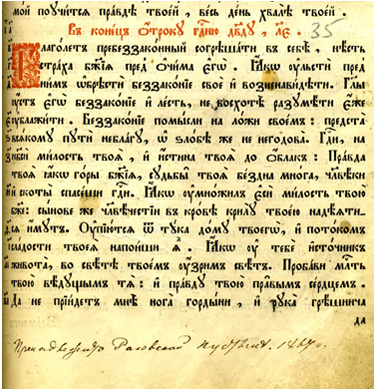 мой поучи́тсѧ пра́вдѣ твое́й, ве́сь де́нь хвалѣ̀ твое́й.
Въ коне́цъ, Ѻ҆́трокꙋ гд҇ню дв҃дꙋ, л҃е. 35
Глаго́летъ пребеззако́нный согрѣша́ти въ себѣ̀, нѣ́сть
стра́ха бж҃їѧ пред̾ ѻ҆чи́ма є҆гѡ̀. Ꙗ҆́кѡ ᲂу҆льстѝ пред̾
ни́мъ ѡ҆брѣстѝ беззако́нїе своѐ и҆ возненави́дѣти. Гл҃ы
ᲂу҆́стъ є҆гѡ̀ беззако́нїе и҆ ле́сть, не восхотѣ̀ разꙋмѣ́ти є҆́же
ᲂу҆блажи́ти. Беззако́нїе помы́сли на ло́жи свое́мъ: предста̀
всѧ́комꙋ пꙋтѝ неблагꙋ̀, ѡ҆ ѕло́бѣ же не негодова̀. Гд҇и, на
нб҃сѝ ми́лость твоѧ̀, и҆ и҆́стина твоѧ̀ до ѻ҆́блакъ: Пра́вда
твоѧ̀ ꙗ҆́кѡ го́ры бж҃їѧ, сꙋдьбы̀ твоѧ̀ бе́здна мно́га, чл҃вѣ́ки
и҆ скоты̀ спасе́ши гд҇и. Ꙗ҆́кѡ ᲂу҆мно́жилъ є҆сѝ ми́лость твою̀
бж҃е: сы́нове же чл҃вѣ́честїи въ кро́вѣ крилꙋ̀ твоє́ю надѣ́ѧти
сѧ и҆́мꙋтъ. Оу҆пїю́тсѧ ѿ тꙋ́ка до́мꙋ твоегѡ̀, и҆ пото́комъ
сла́дости твоеѧ̀ напои́ши ѧ҆̀. Ꙗ҆́кѡ ᲂу҆ тебѐ и҆сто́чникъ
живота̀, во свѣ́те твое́мъ ᲂу҆́зримъ свѣ́тъ. Проба́ви мл҇ть
твою̀ вѣ́дꙋщымъ тѧ̀: и҆ пра́вдꙋ твою̀ пра́вымъ се́рдцемъ.
Да не прїи́детъ мнѣ̀ нога̀ горды́ни, и҆ рꙋка̀ грѣ́шнича
да
Принадлежитъ пустыни.